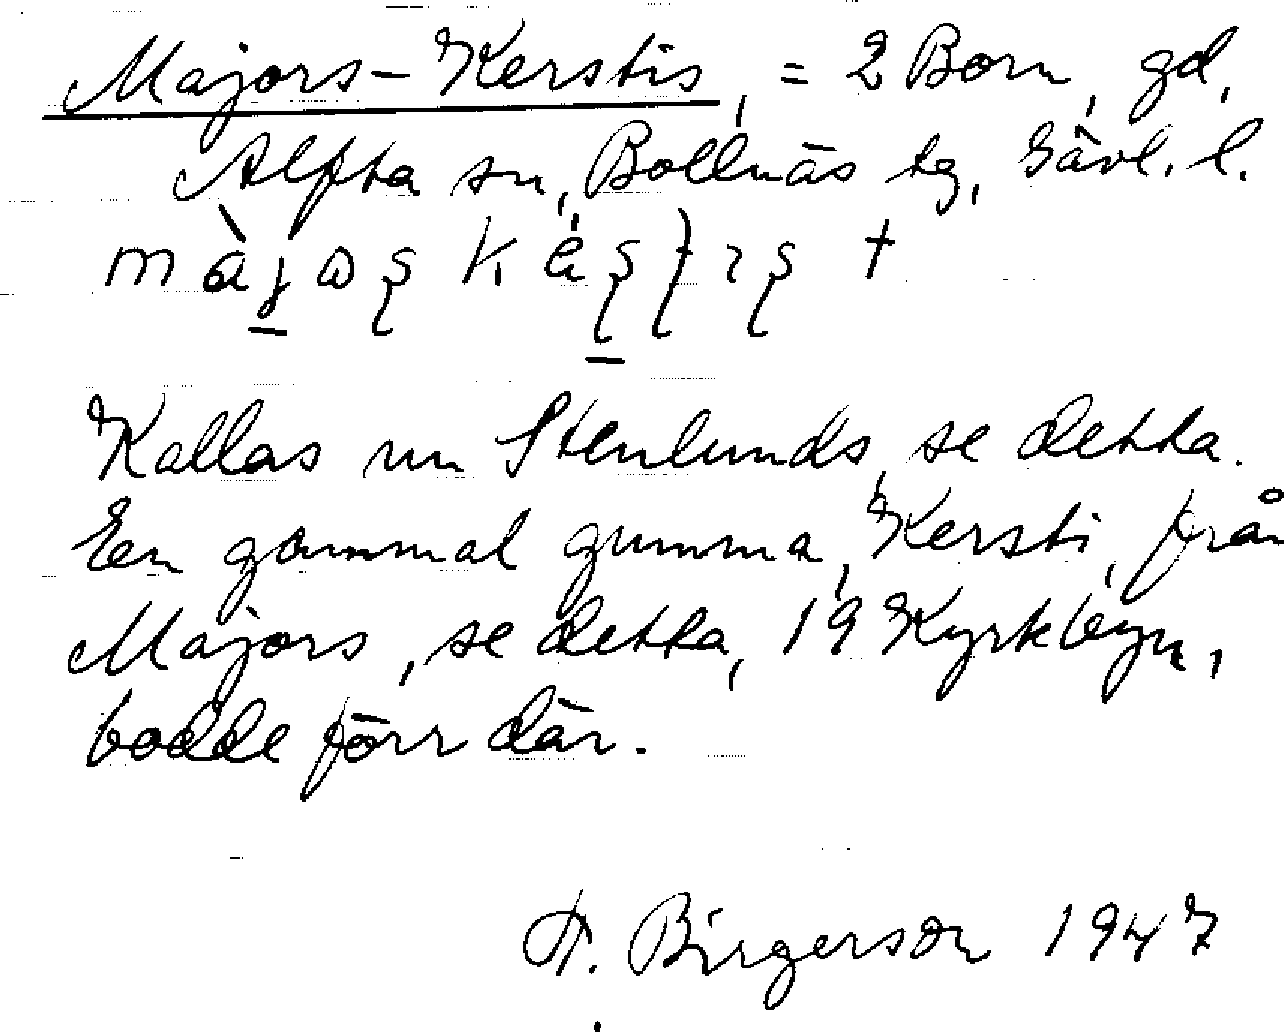 Majors-Kerstis, = 2 Born, gd,
Alfta sn, Bollnäs tg, Gävl. l.
Kallas nu Stenlunds, se detta.
En gammal gumma, Kersti, från
Majors, se detta, 19 Kyrkbyn,
bodde förr där.
A. Birgerson 1947